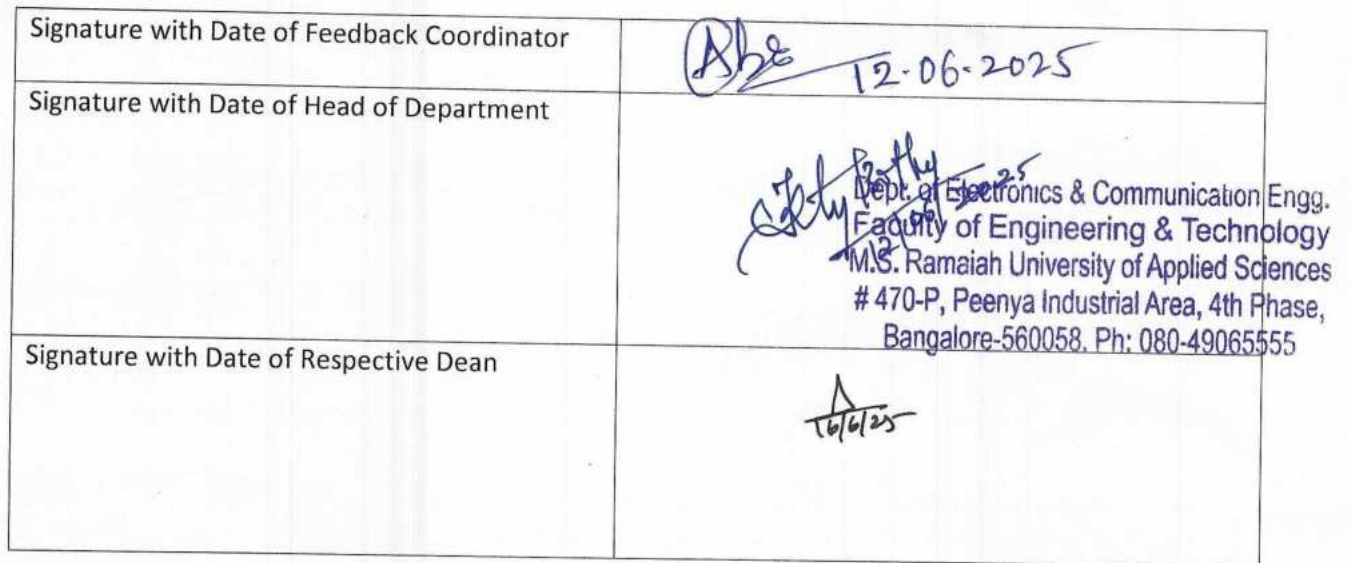 Signature with Date of Feedback Coordinator
12-06-2025
Signature with Date of Head of Department
Dept. of Electronics & Communication Engg.
Faculty of Engineering & Technology
M.S. Ramaiah University of Applied Sciences
# 470-P, Peenya Industrial Area, 4th Phase,
Bangalore-560058. Ph: 080-49065555
Signature with Date of Respective Dean
16/6/25